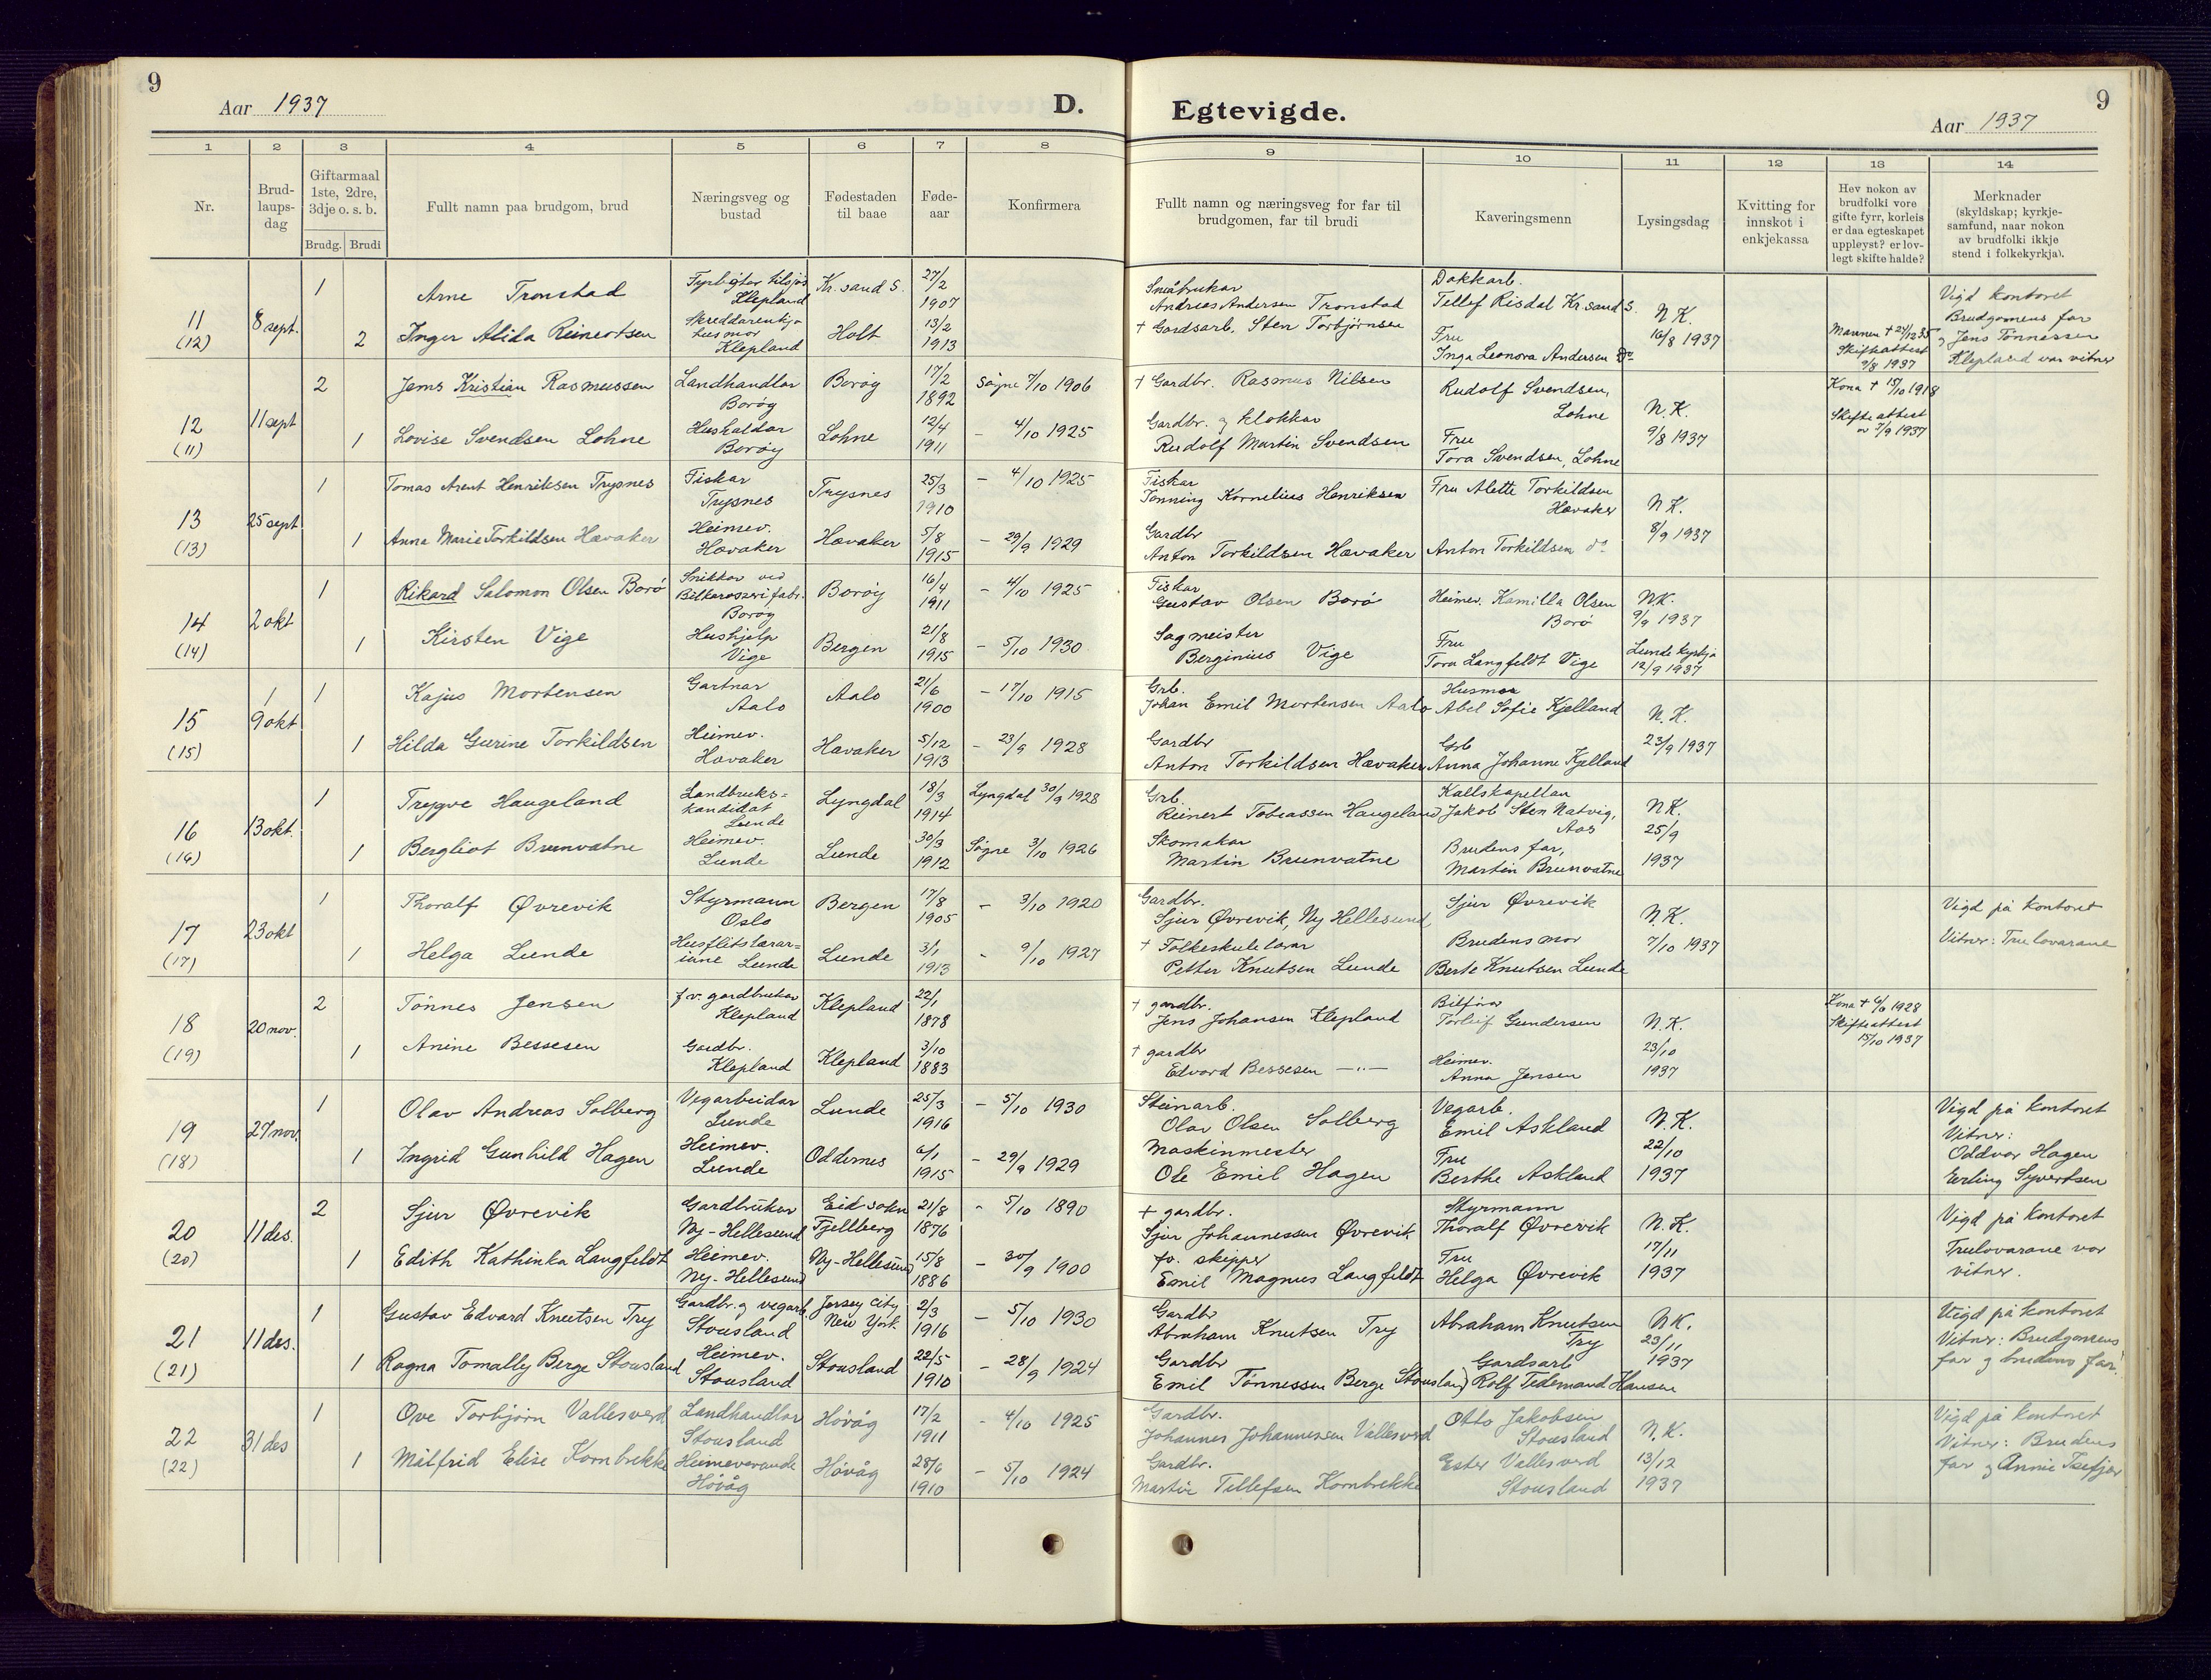 9
Aar 1937
D.
Egtevigde.
Aar 1937
9
1 2 3 4 5 6 7 8 9 10 11 12 13 14
Nr.
Brud-
laups-
dag
Giftarmaal
1ste, 2dre,
3dje o. s. b.
Brudg. Brudi
Fullt namn paa brudgom, brud
Næringsveg og
bustad
Fødestaden
til baae
Føde-
aar
Konfirmera
Fullt namn og næringsveg for far til
brudgomen, far til brudi
Kaveringsmenn
Lysingsdag
Kvitting for
innskot i
enkjekassa
Hev nokon av
brudfolki vore
gifte fyrr, korleis
er daa egteskapet
uppløyst? er lov-
legt skifte halde?
Merknader
(skyldskap; kyrkje-
samfund, naar nokon
av brudfolki ikkje
stend i folkekyrkja).
11
(12)
8 sept.
1
Arne Tronstad
Fyrbøter tilsjøs
Klepland
Kr.sand S.
27/2
1907
Småbrukar
Andreas Andersen Tronstad
Dokkarb.
Tellef Risdal Kr.sand S.
2
Inger Alida Reinertsen
Skreddarenkje
husmor
Klepland
Holt
13/2
1913
+ Gardsarb. Sten Torbjørnsen
Fru
Inga Leonora Andersen do
N.K.
16/8 1937
Mannen + 24/12 35
Skifteattest
9/8 1937
Vigd kontoret
Brudgomens far
og Jens Tønnessen
Klepland var vitner
12
(11)
11 sept
2
Jens Kristian Rasmussen
Landhandlar
Borøy
Borøy
17/2
1892
Søgne 7/10 1906
+ Gardbr. Rasmus Nilsen
Rudolf Svendsen,
Lohne
1
Lovise Svendsen Lohne
Hushaldar
Borøy
Lohne
12/4
1911
- 4/10 1925
Gardbr. og klokkar
Rudolf Martin Svendsen
Fru
Tora Svendsen, Lohne
N.K.
9/8 1937
Kona + 15/10 1918
Skifteattest
av 3/9 1937
13
(13)
25 sept
1
Tomas Arent Henriksen Trysnes
Fiskar
Trysnes
Trysnes
25/3
1910
- 4/10 1925
Fiskar
Tønning Kornelius Henriksen
Fru Alette Torkildsen
Høvaker
1
Anna Marie Torkildsen Høvaker
Heimev.
Høvaker
Høvaker
5/8
1915
- 29/9 1929
Gardbr
Anton Torkildsen Høvaker
Anton Torkildsen do
N.K.
8/9 1937
14
(14)
2 okt
1
Rikard Salomon Olsen Borø
Snikkar ved
Bilkarosserifabr.
Borøy
Borøy
16/4
1911
- 4/10 1925
Fiskar
Gustav Olsen Borø
Heimev. Kamilla Olsen
Borø
N.K.
9/9 1937
1
Kirsten Vige
Hushjelp
Vige
Bergen
21/8
1915
- 5/10 1930
Sagmeister
Berginius Vige
Fru
Tora Langfeldt Vige
Lunde kyrkja
12/9 1937
15
(15)
9 okt
1
Kajus Mortensen
Gartnar
Aalo
Aalo
21/6
1900
- 17/10 1915
Grb.
Johan Emil Mortensen Aalo
Husmor
Abel Sofie Kjelland
1
Hilda Gurine Torkildsen
Heimev.
Høvaker
Høvaker
5/12
1913
- 23/9 1928
Gardbr
Anton Torkildsen Høvaker
Grb
Anna Johanne Kjelland
N.K.
23/9 1937
16
(16)
13 okt.
1
Trygve Haugeland
Landbruks-
kandidat
Lunde
Lyngdal
18/3
1914
Lyngdal 30/9 1928
Grb.
Reinert Tobiassen Haugeland
Kallskapellan
Jakob Sten Natvig,
Aas
1
Bergliot Brunvatne
Heimev.
Lunde
Lunde
30/3
1912
Søgne 3/10 1926
Skomakar
Martin Brunvatne
Brudens far,
Martin Brunvatne
N.K.
25/9
1937
17
(17)
23 okt
1
Thoralf Øvrevik
Styrmann
Oslo
Bergen
17/8
1905
- 3/10 1920
Gardbr.
Sjur Øvrevik, Ny Hellesund
Sjur Øvrevik
1
Helga Lunde
Husflitslærar-
inne Lunde
Lunde
3/1
1913
- 9/10 1927
+ Folkeskulelærar
Petter Knutsen Lunde
Brudens mor
Berte Knutsen Lunde
N.K.
7/10 1937
Vigd på kontoret
Vitner: Trulovarane
18
(19)
20 nov.
2
Tønnes Jensen
f.v. gardbrukar
Klepland
Klepland
22/1
1878
+ gardbr.
Jens Johansen Klepland
Bilførar
Torleif Gundersen
1
Anine Bessesen
Gardbr.
Klepland
Klepland
3/10
1883
+ gardbr
Edvard Bessesen —"—
Heimev.
Anna Jensen
N.K.
23/10
1937
Kona + 6/6 1928
Skifteattest
15/10 1937
19
(18)
27 nov.
1
Olav Andreas Solberg
Vegarbeidar
Lunde
Lunde
25/3
1916
- 5/10 1930
Steinarb.
Olav Olsen Solberg
Vegarb.
Emil Askland
1
Ingrid Gunhild Hagen
Heimev.
Lunde
Oddernes
6/1
1915
- 29/9 1929
Maskinmester
Ole Emil Hagen
Fru
Berthe Askland
N.K.
22/10
1937
Vigd på kontoret
Vitner:
Oddvar Hagen
Erling Syvertsen
20
(20)
11 des.
2
Sjur Øvrevik
Gardbrukar
Ny-Hellesund
Eid sokn
Fjellberg
21/8
1876
- 5/10 1890
+ gardbr.
Sjur Johannessen Øvrevik
Styrmann
Thoralf Øvrevik
1
Edith Kathinka Langfeldt
Heimev.
Ny-Hellesund
Ny-Hellesund
15/8
1886
- 30/9 1900
fv. skipper
Emil Magnus Langfeldt
Fru
Helga Øvrevik
N.K.
17/11
1937
Vigd på kontoret
Trulovarane var
vitner.
21
(21)
11 des.
1
Gustav Edvard Knutsen Try
Gardbr. og vegarb.
Stousland
Jersey City
New York
2/3
1916
- 5/10 1930
Gardbr
Abraham Knutsen Try
Abraham Knutsen
Try
1
Ragna Tomally Berge Stousland
Heimev.
Stousland
Stousland
22/5
1910
- 28/9 1924
Gardbr
Emil Tønnessen Berge Stousland
Gardsarb
Rolf Tedemand Hansen
N.K.
23/11
1937
Vigd på kontoret
Vitner: Brudgomens
far og brudens far.
22
(22)
31 des
1
Ove Torbjørn Vallesverd
Landhandlar
Stousland
Høvåg
17/2
1911
- 4/10 1925
Gardbr.
Johannes Johannessen Vallesverd
Otto Jakobsen
Stousland
1
Milfrid Elise Kornbrekke
Heimeverande
Høvåg
Høvåg
28/6
1910
- 5/10 1924
Gardbr.
Martin Tellefsen Kornbrekke
Ester Vallesverd
Stousland
N.K.
13/12
1937
Vigd på kontoret
Vitner: Brudens
far og Annie